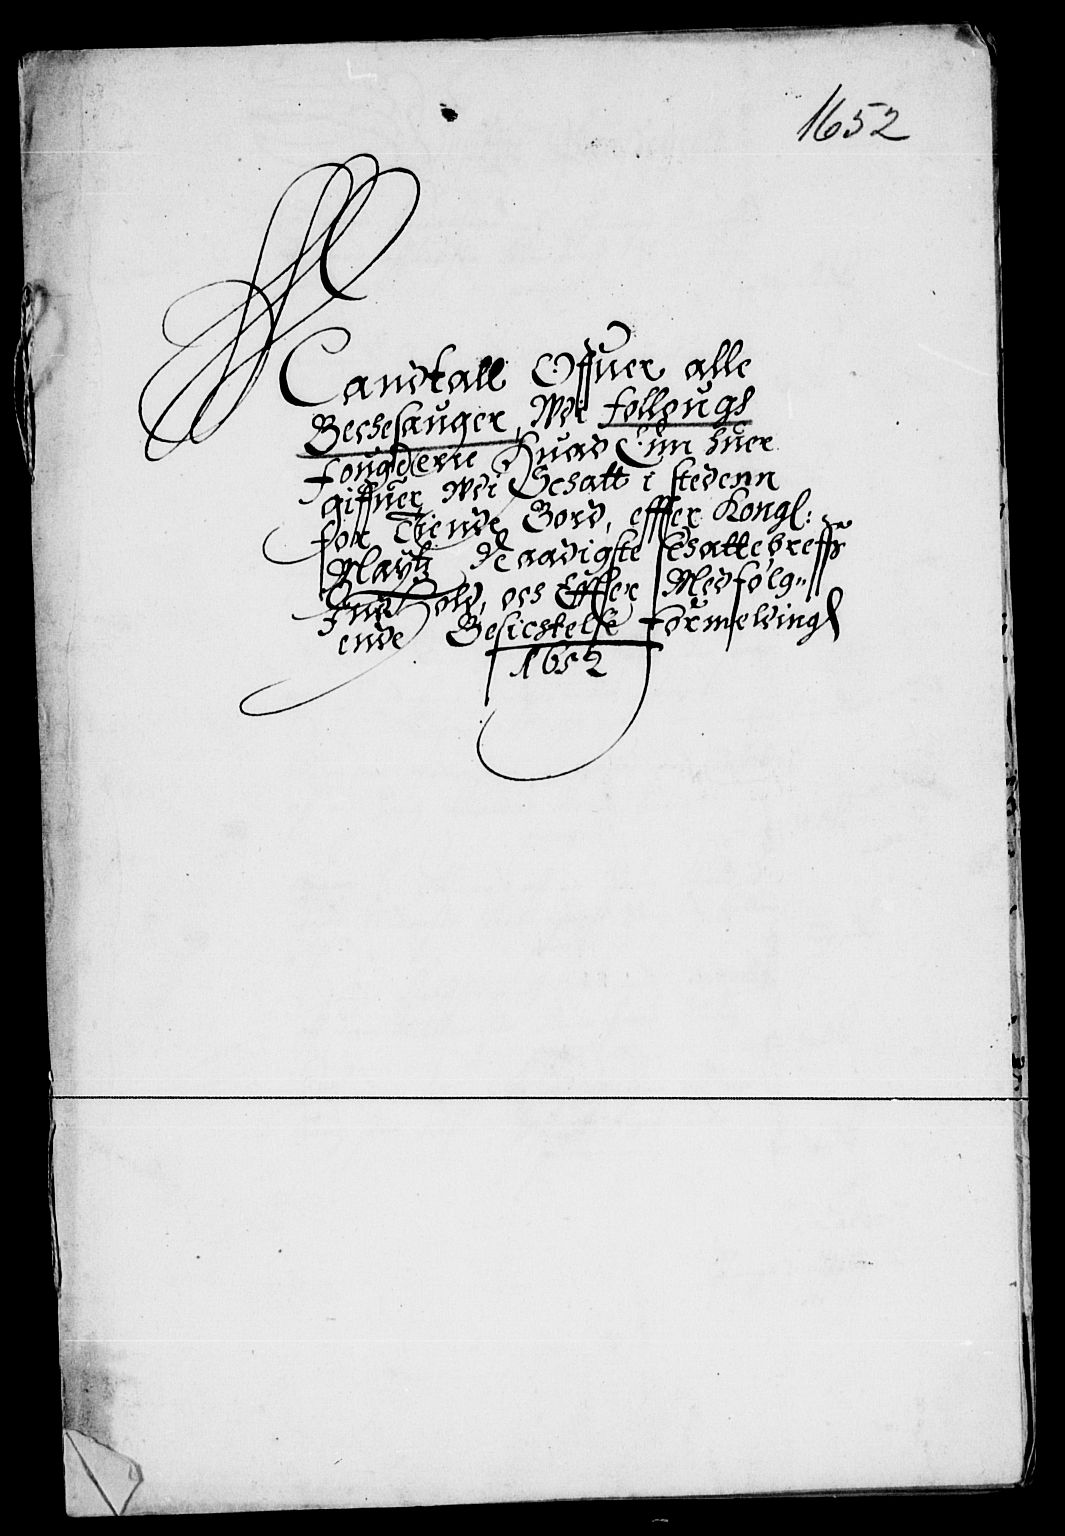 1652
Mandtall Offuer alle
Beckesauger, Wdi Follougs
fougderie Huad Enn huer
giffuer Wdi Schatt i stedenn
for Tiende Bord, effter Kongl:
Maÿtz Naadigste schattebreffs
Indhold, och Effter Medfølg-
ende Besichtelse formeldings
1652